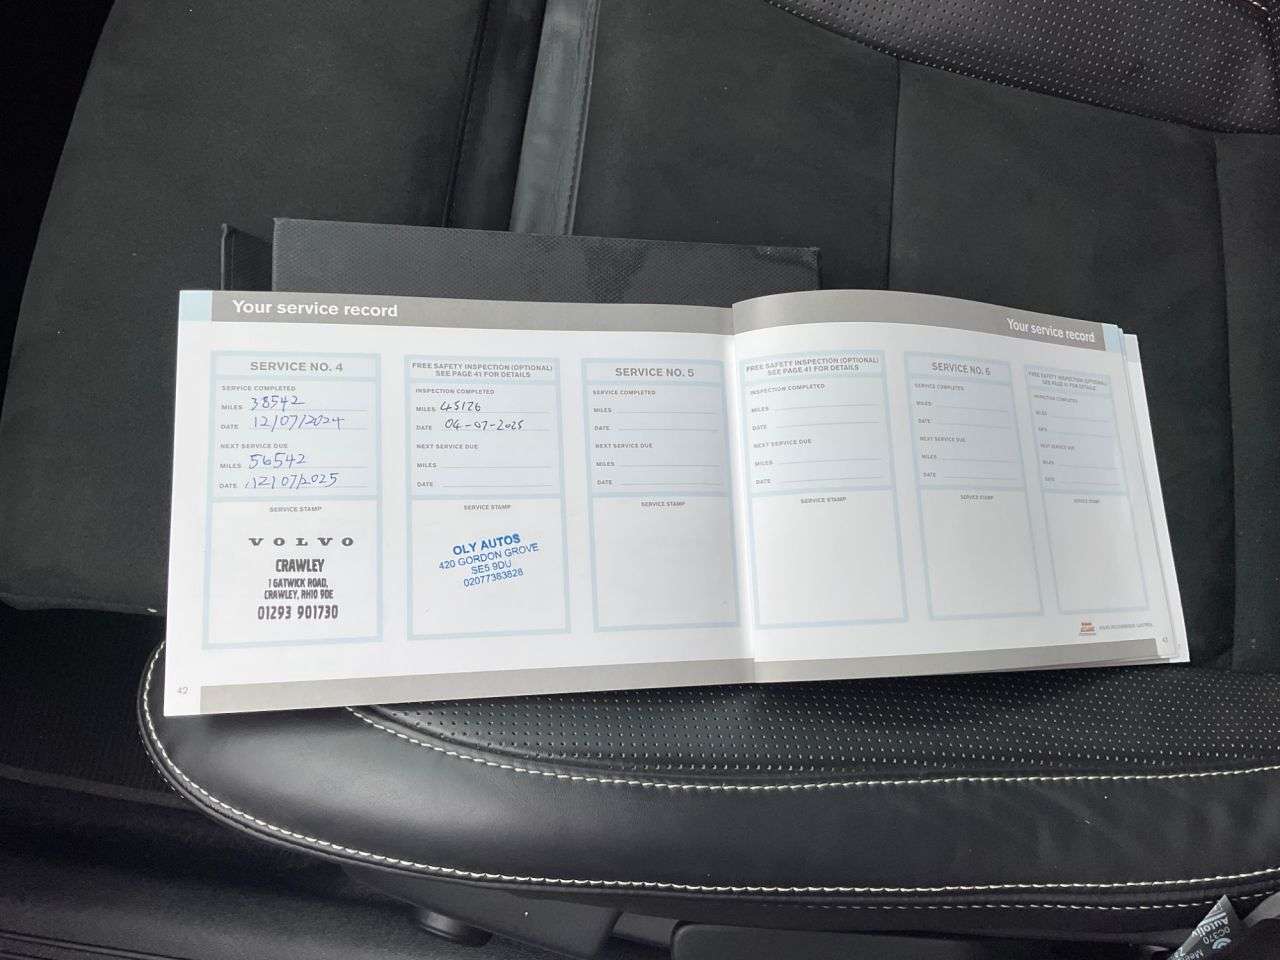 Your service record
SERVICE NO. 4
SERVICE COMPLETED
MILES 38542
DATE 12/07/2024
NEXT SERVICE DUE
MILES 56542
DATE 12/07/2025
SERVICE STAMP
VOLVO
CRAWLEY
1 GATWICK ROAD,
CRAWLEY, RH10 9DE
01293 901730
FREE SAFETY INSPECTION (OPTIONAL)
SEE PAGE 41 FOR DETAILS
INSPECTION COMPLETED
MILES 45126
DATE 04-07-2025
NEXT SERVICE DUE
MILES
DATE
SERVICE STAMP
OLY AUTOS
420 GORDON GROVE
SE5 9DU
02077383828
SERVICE NO. 5
SERVICE COMPLETED
MILES
DATE
NEXT SERVICE DUE
MILES
DATE
SERVICE STAMP
42
Your service record
FREE SAFETY INSPECTION (OPTIONAL)
SEE PAGE 41 FOR DETAILS
INSPECTION COMPLETED
MILES
DATE
NEXT SERVICE DUE
MILES
DATE
SERVICE STAMP
SERVICE NO. 6
SERVICE COMPLETED
MILES
DATE
NEXT SERVICE DUE
MILES
DATE
SERVICE STAMP
FREE SAFETY INSPECTION (OPTIONAL)
SEE PAGE 41 FOR DETAILS
INSPECTION COMPLETED
MILES
DATE
NEXT SERVICE DUE
MILES
DATE
SERVICE STAMP
43
OC370
Autoliv